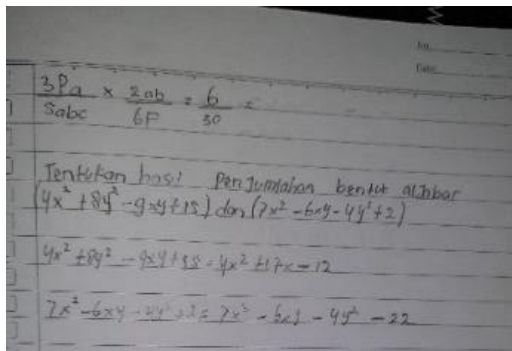 No
Date
3Pa/5abc × 2ab/6P = 6/30 =
Tentukan hasil Penjumlahan bentuk aljabar
(4x² + 8y² - 9xy + 15) dan (7x² - 6xy - 4y² + 2)
4x² + 8y² - 9xy + 15 = 4x² + 17x - 12
7x² - 6xy - 4y² + 2 = 7x² - 6xy - 4y² - 22